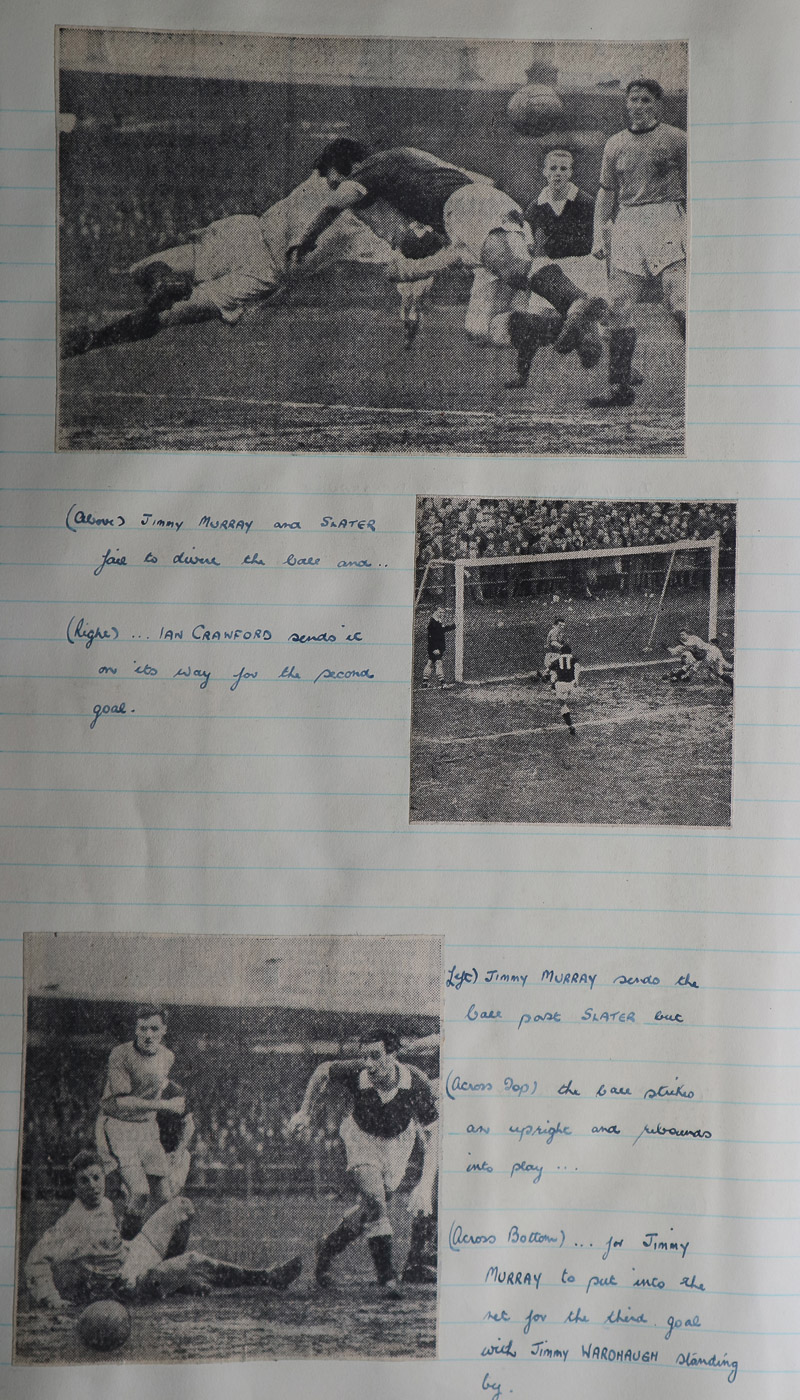 (Above) Jimmy MURRAY and SLATER
fail to divine the ball and ..
(Right) ... IAN CRAWFORD sends it
on its way for the second
goal.
11
Left) Jimmy MURRAY sends the
ball past SLATER but
(Across Top) the ball strikes
an upright and rebounds
into play ...
(Across Bottom) ... for Jimmy
MURRAY to put into the
net for the third goal
with Jimmy WARDHAUGH standing
by.